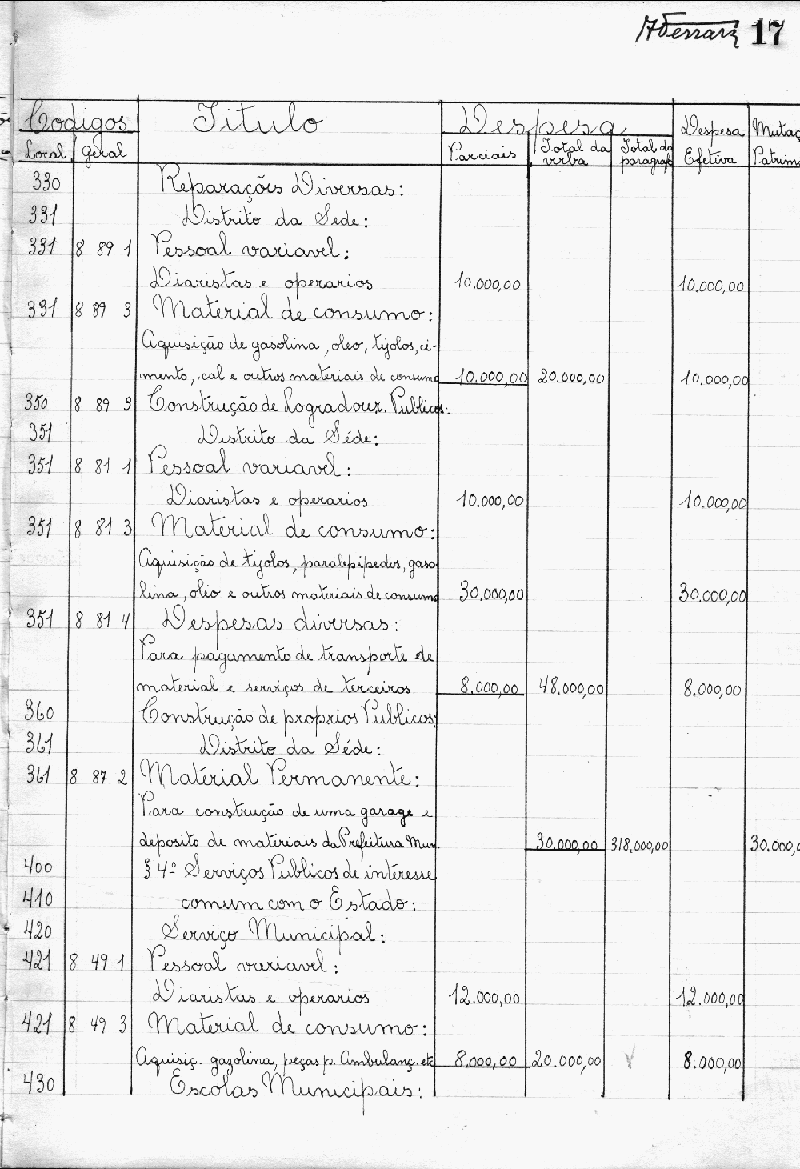 17
Codigos Titulo Despesa Despesa Mutaç
Local Geral Parciais Total da verba Total do paragraf Efetiva Patrim
330 Reparações Diversas:
331 Distrito da Sede:
331 8 89 1 Pessoal variavel:
Diaristas e operarios 10.000,00 10.000,00
331 8 89 3 Material de consumo:
Aquisição de gasolina, oleo, tijolos, ci-
mento, cal e outros materiais de consumo 10.000,00 20.000,00 10.000,00
350 8 89 3 Construção de Logradour. Publicos:
351 Distrito da Séde:
351 8 81 1 Pessoal variavel:
Diaristas e operarios 10.000,00 10.000,00
351 8 81 3 Material de consumo:
Aquisição de tijolos, paralepipedos, gaso
lina, olio e outros materiais de consumo 30.000,00 30.000,00
351 8 81 4 Despesas diversas:
Para pagamento de transporte de
material e serviços de terceiros 8.000,00 48.000,00 8.000,00
360 Construção de proprios Publicos
361 Distrito da Séde:
361 8 87 2 Material Permanente:
Para construção de uma garage e
deposito de materiais da Prefeitura Mun 30.000,00 318.000,00 30.000,0
400 § 4º Serviços Publicos de interesse
410 comum com o Estado:
420 Serviço Municipal:
421 8 49 1 Pessoal variavel:
Diaristas e operarios 12.000,00 12.000,00
421 8 49 3 Material de consumo:
Aquisiç. gazolina, peças p. Ambulanç. etc 8.000,00 20.000,00 8.000,00
430 Escolas Municipais: